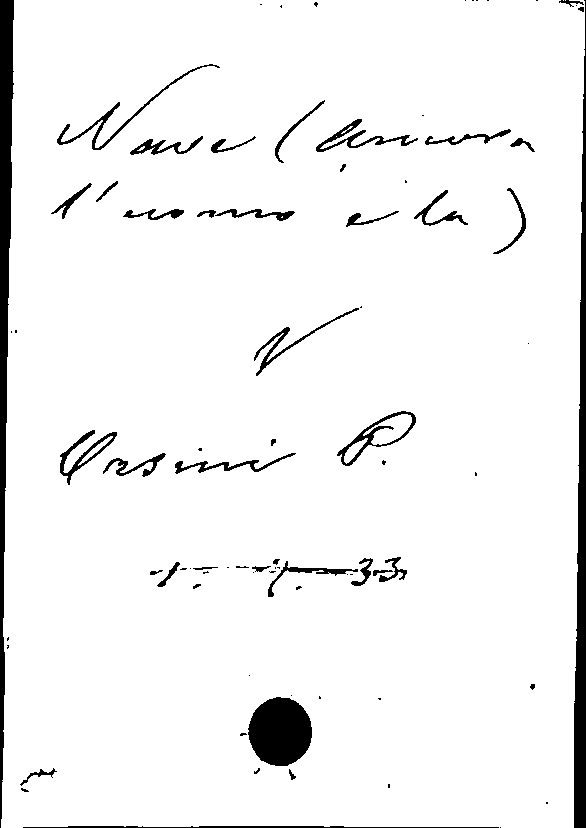 Nave (Ancora
l'uomo e la)
V
Orsini P.
1. 7. 33